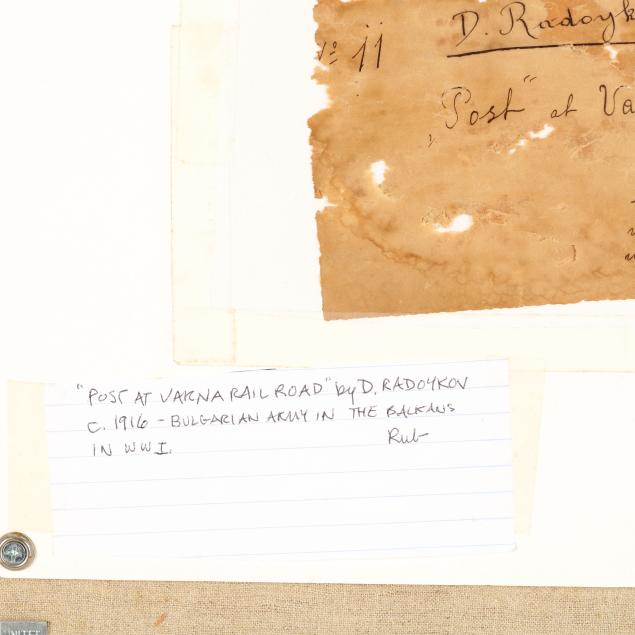 № 11
D. Radoyk
„Post" at Va
"POST AT VARNA RAIL ROAD" by D. RADOYKOV
C. 1916 - BULGARIAN ARMY IN THE BALKANS
IN WWI.
Rub